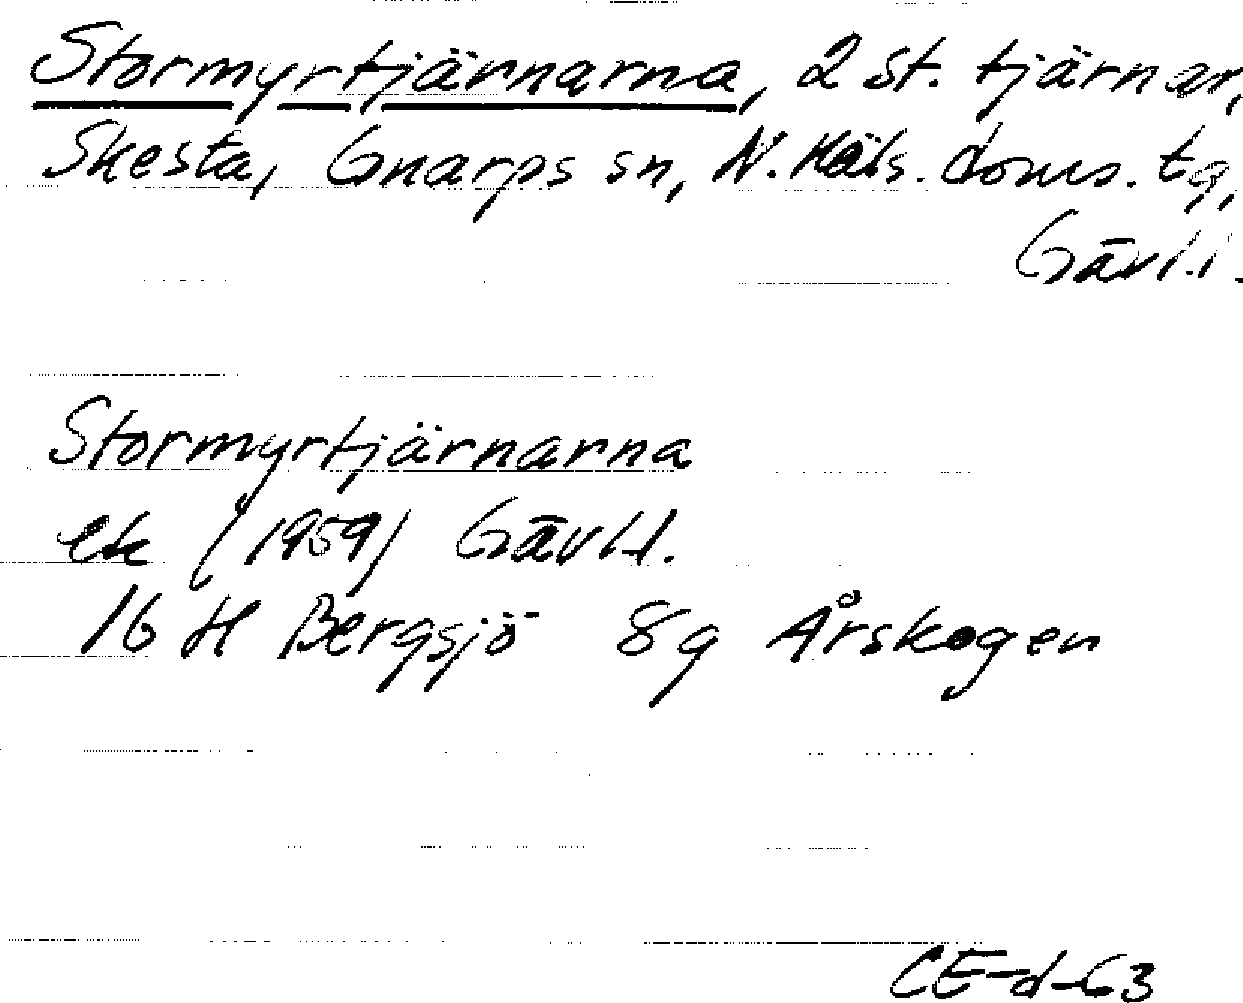 Stormyrtjärnarna, 2 st. tjärnar,
Skesta, Gnarps sn, N. Häls. doms. tg,
Gävl.l.
Stormyrtjärnarna
ek (1959) Gävl.l.
16 H Bergsjö 8g Årskogen
CE-d-63